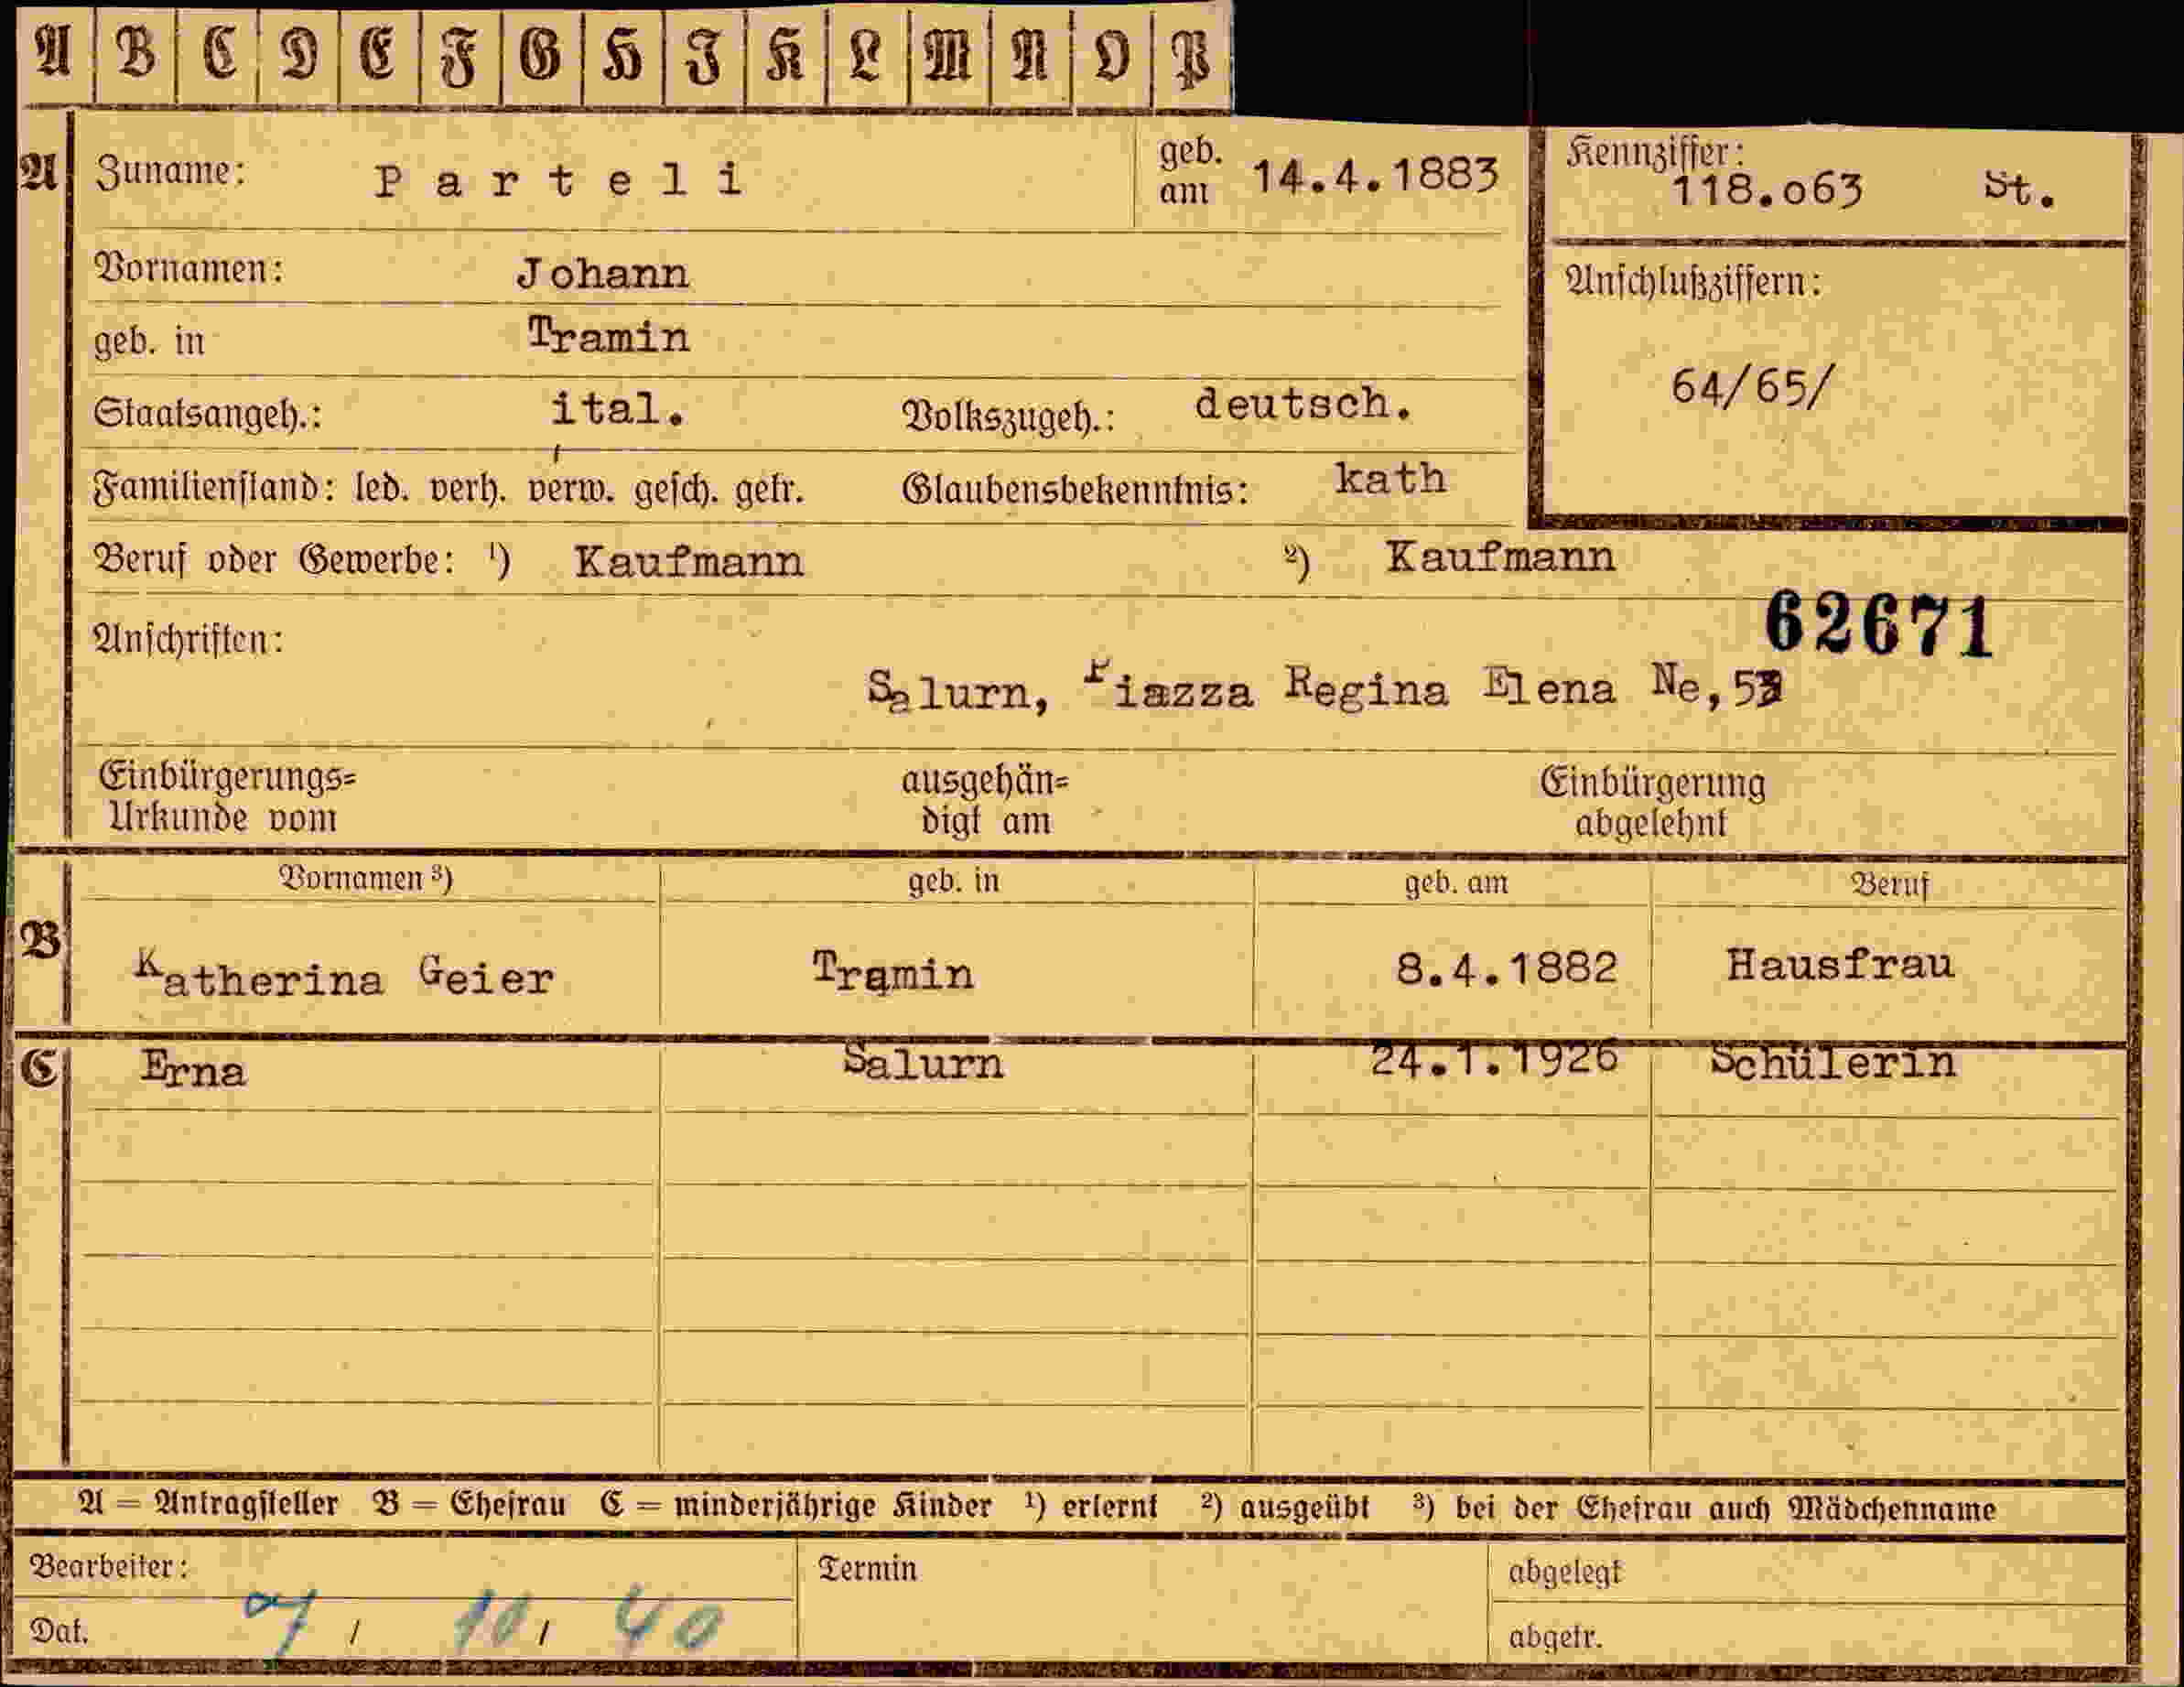 A B C D E F G H J K L M N O P
A Zuname: Parteli geb. am 14.4.1883 Kennziffer: 118.o63 St.
Vornamen: Johann Anschlußziffern:
geb. in Tramin
64/65/
Staatsangeh.: ital. Volkszugeh.: deutsch.
Familienstand: led. verh. verw. gesch. getr. Glaubensbekenntnis: kath
Beruf oder Gewerbe: ¹) Kaufmann ²) Kaufmann
62671
Anschriften:
Salurn, Piazza Regina Elena Ne,
Einbürgerungs= ausgehän= Einbürgerung
Urkunde vom digt am abgelehnt
Vornamen ³) geb. in geb. am Beruf
B Katherina Geier Tramin 8.4.1882 Hausfrau
C Erna Salurn 24.1.1926 Schülerin
A = Antragsteller B = Ehefrau C = minderjährige Kinder ¹) erlernt ²) ausgeübt ³) bei der Ehefrau auch Mädchenname
Bearbeiter: Termin abgelegt
Dat. 7/ 10/ 40 abgetr.